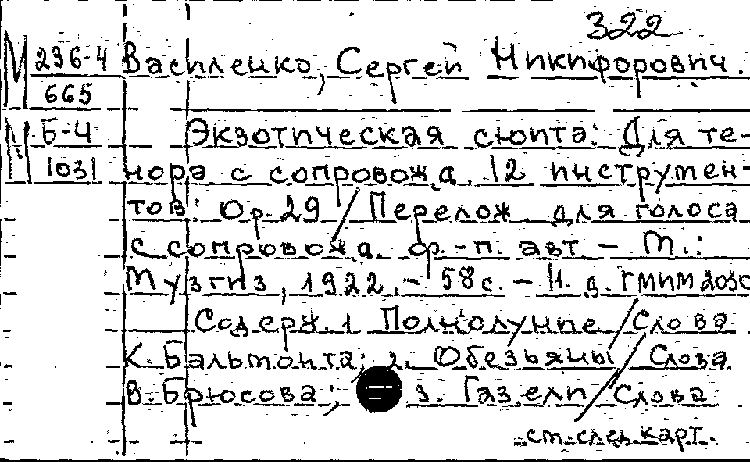 322
М 236-4 Василенко, Сергей Никифорович.
665
М Б-4 Экзотическая сюита: Для те-
1031 нора с сопровожд. 12 инструмен-
тов: Ор. 29 / Перелож. для голоса
с сопровожд. ф.-п. авт. – М.:
Музгиз, 1922. – 58 с. – Н. д.
Содерж. 1 Полнолуние / Слова
К. Бальмонта; 2. Обезьяны / Слова
В. Брюсова; 3. Газели / Слова
см. след. карт.